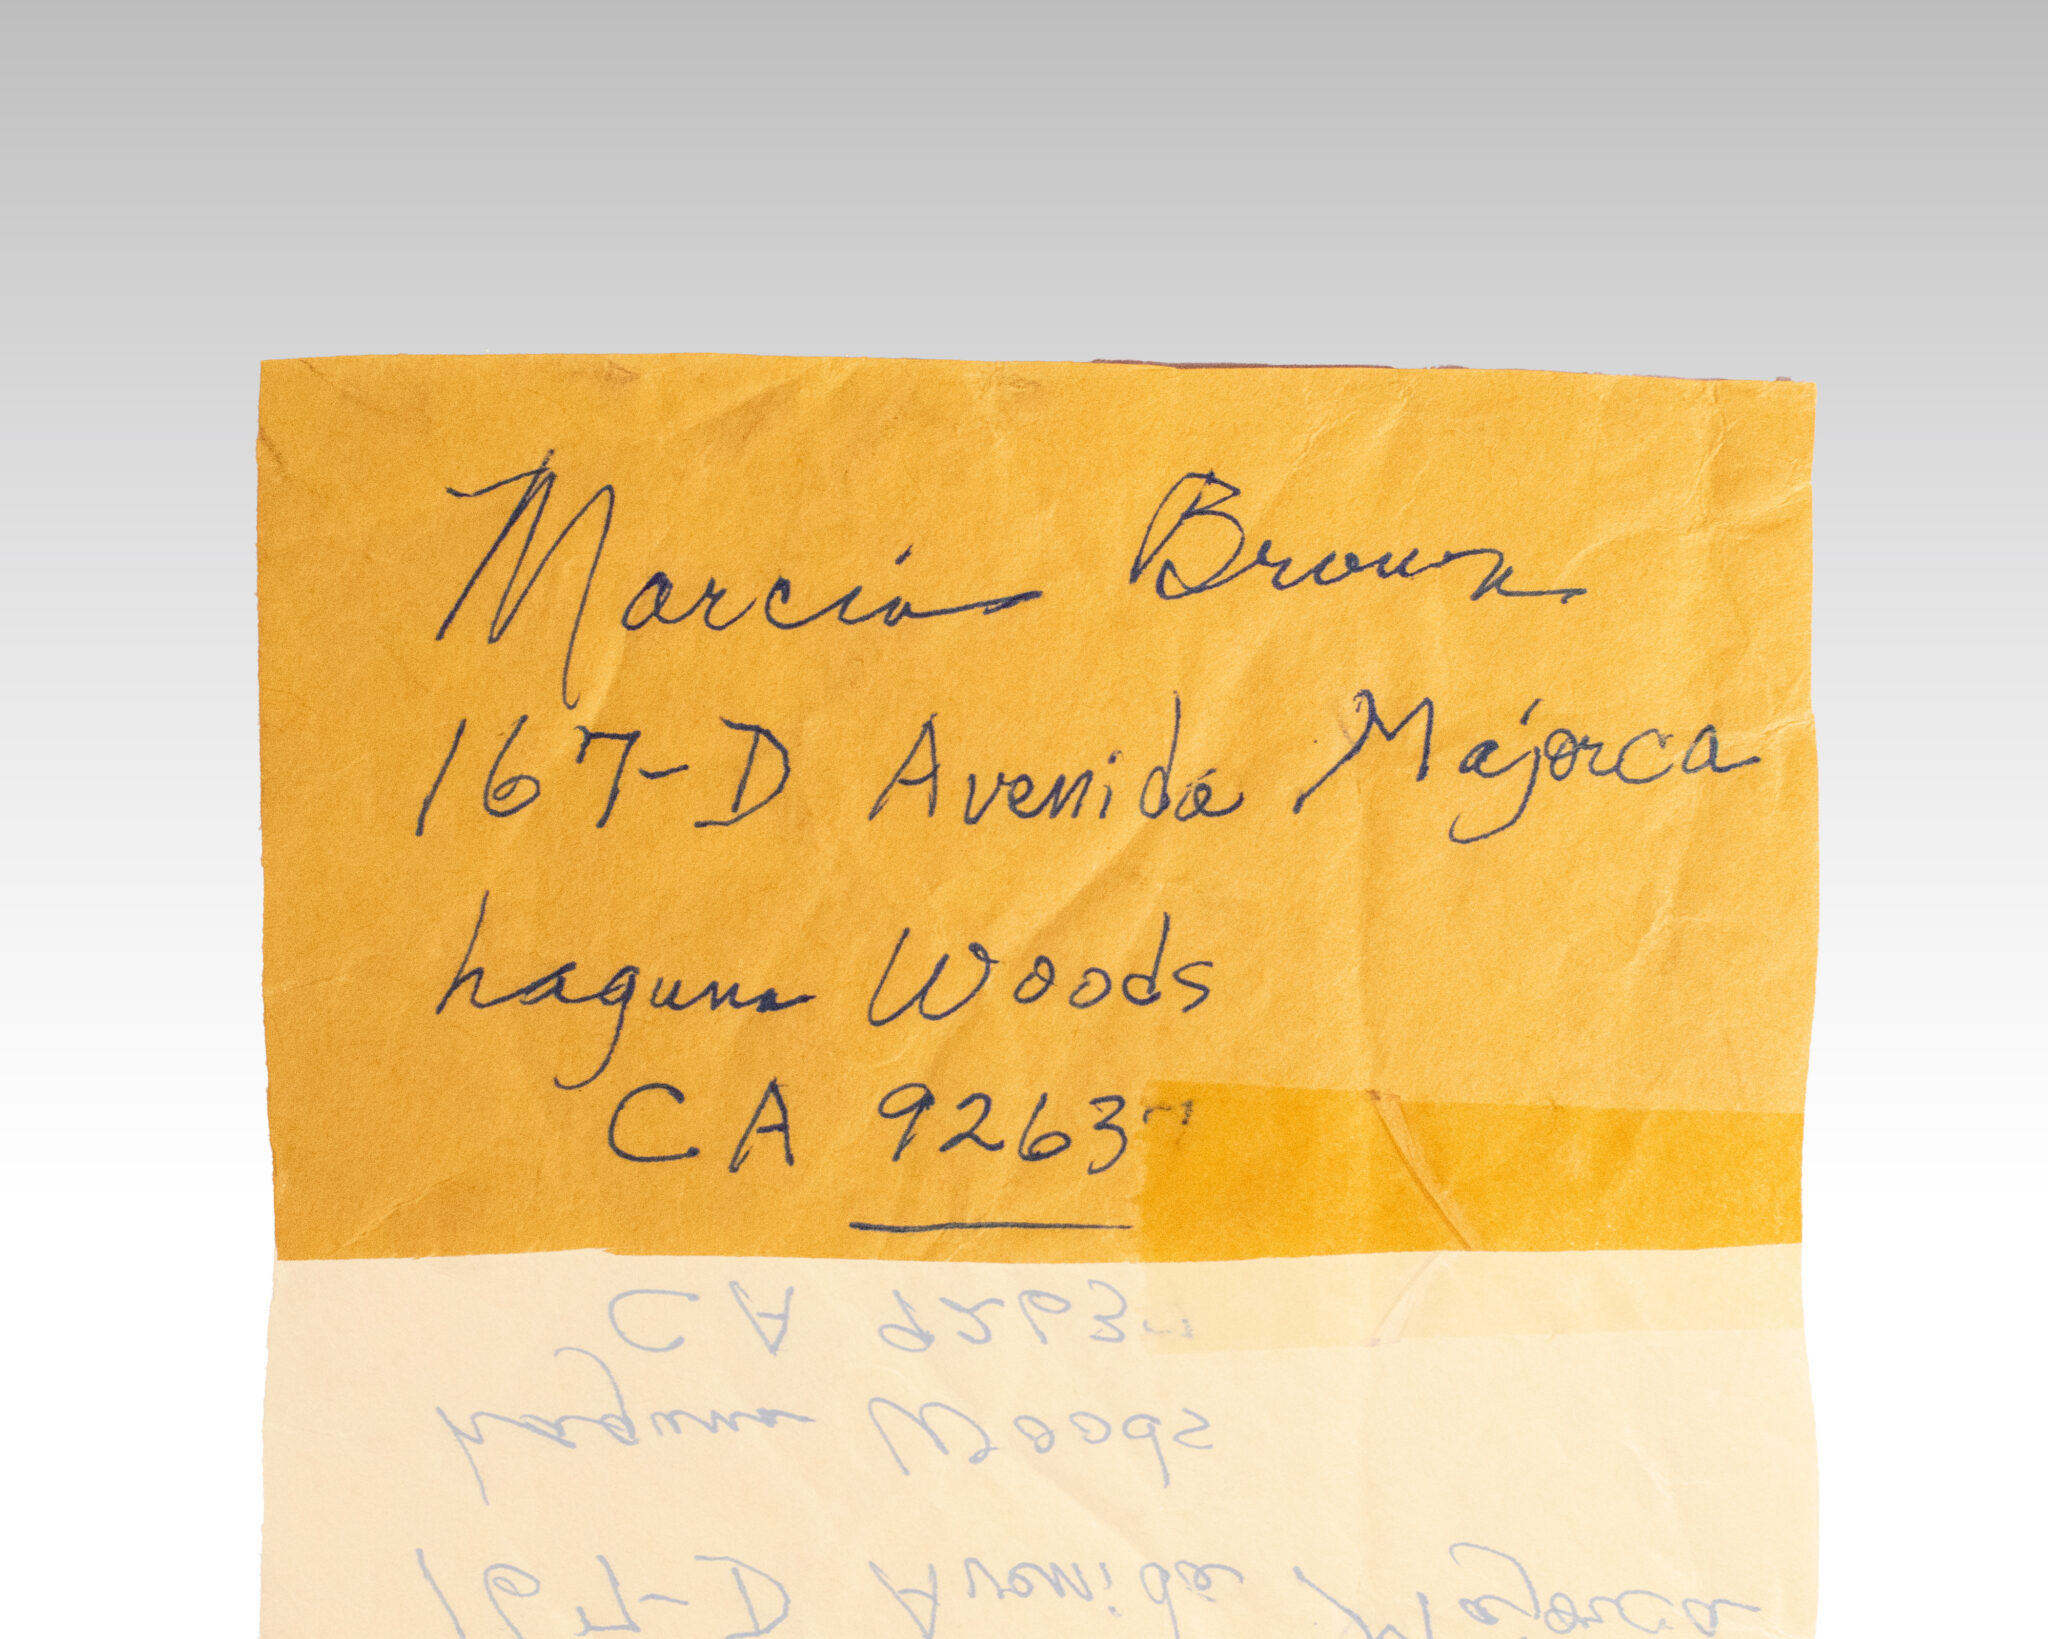 Marcia Brown
167-D Avenida Majorca
Laguna Woods
CA 9263